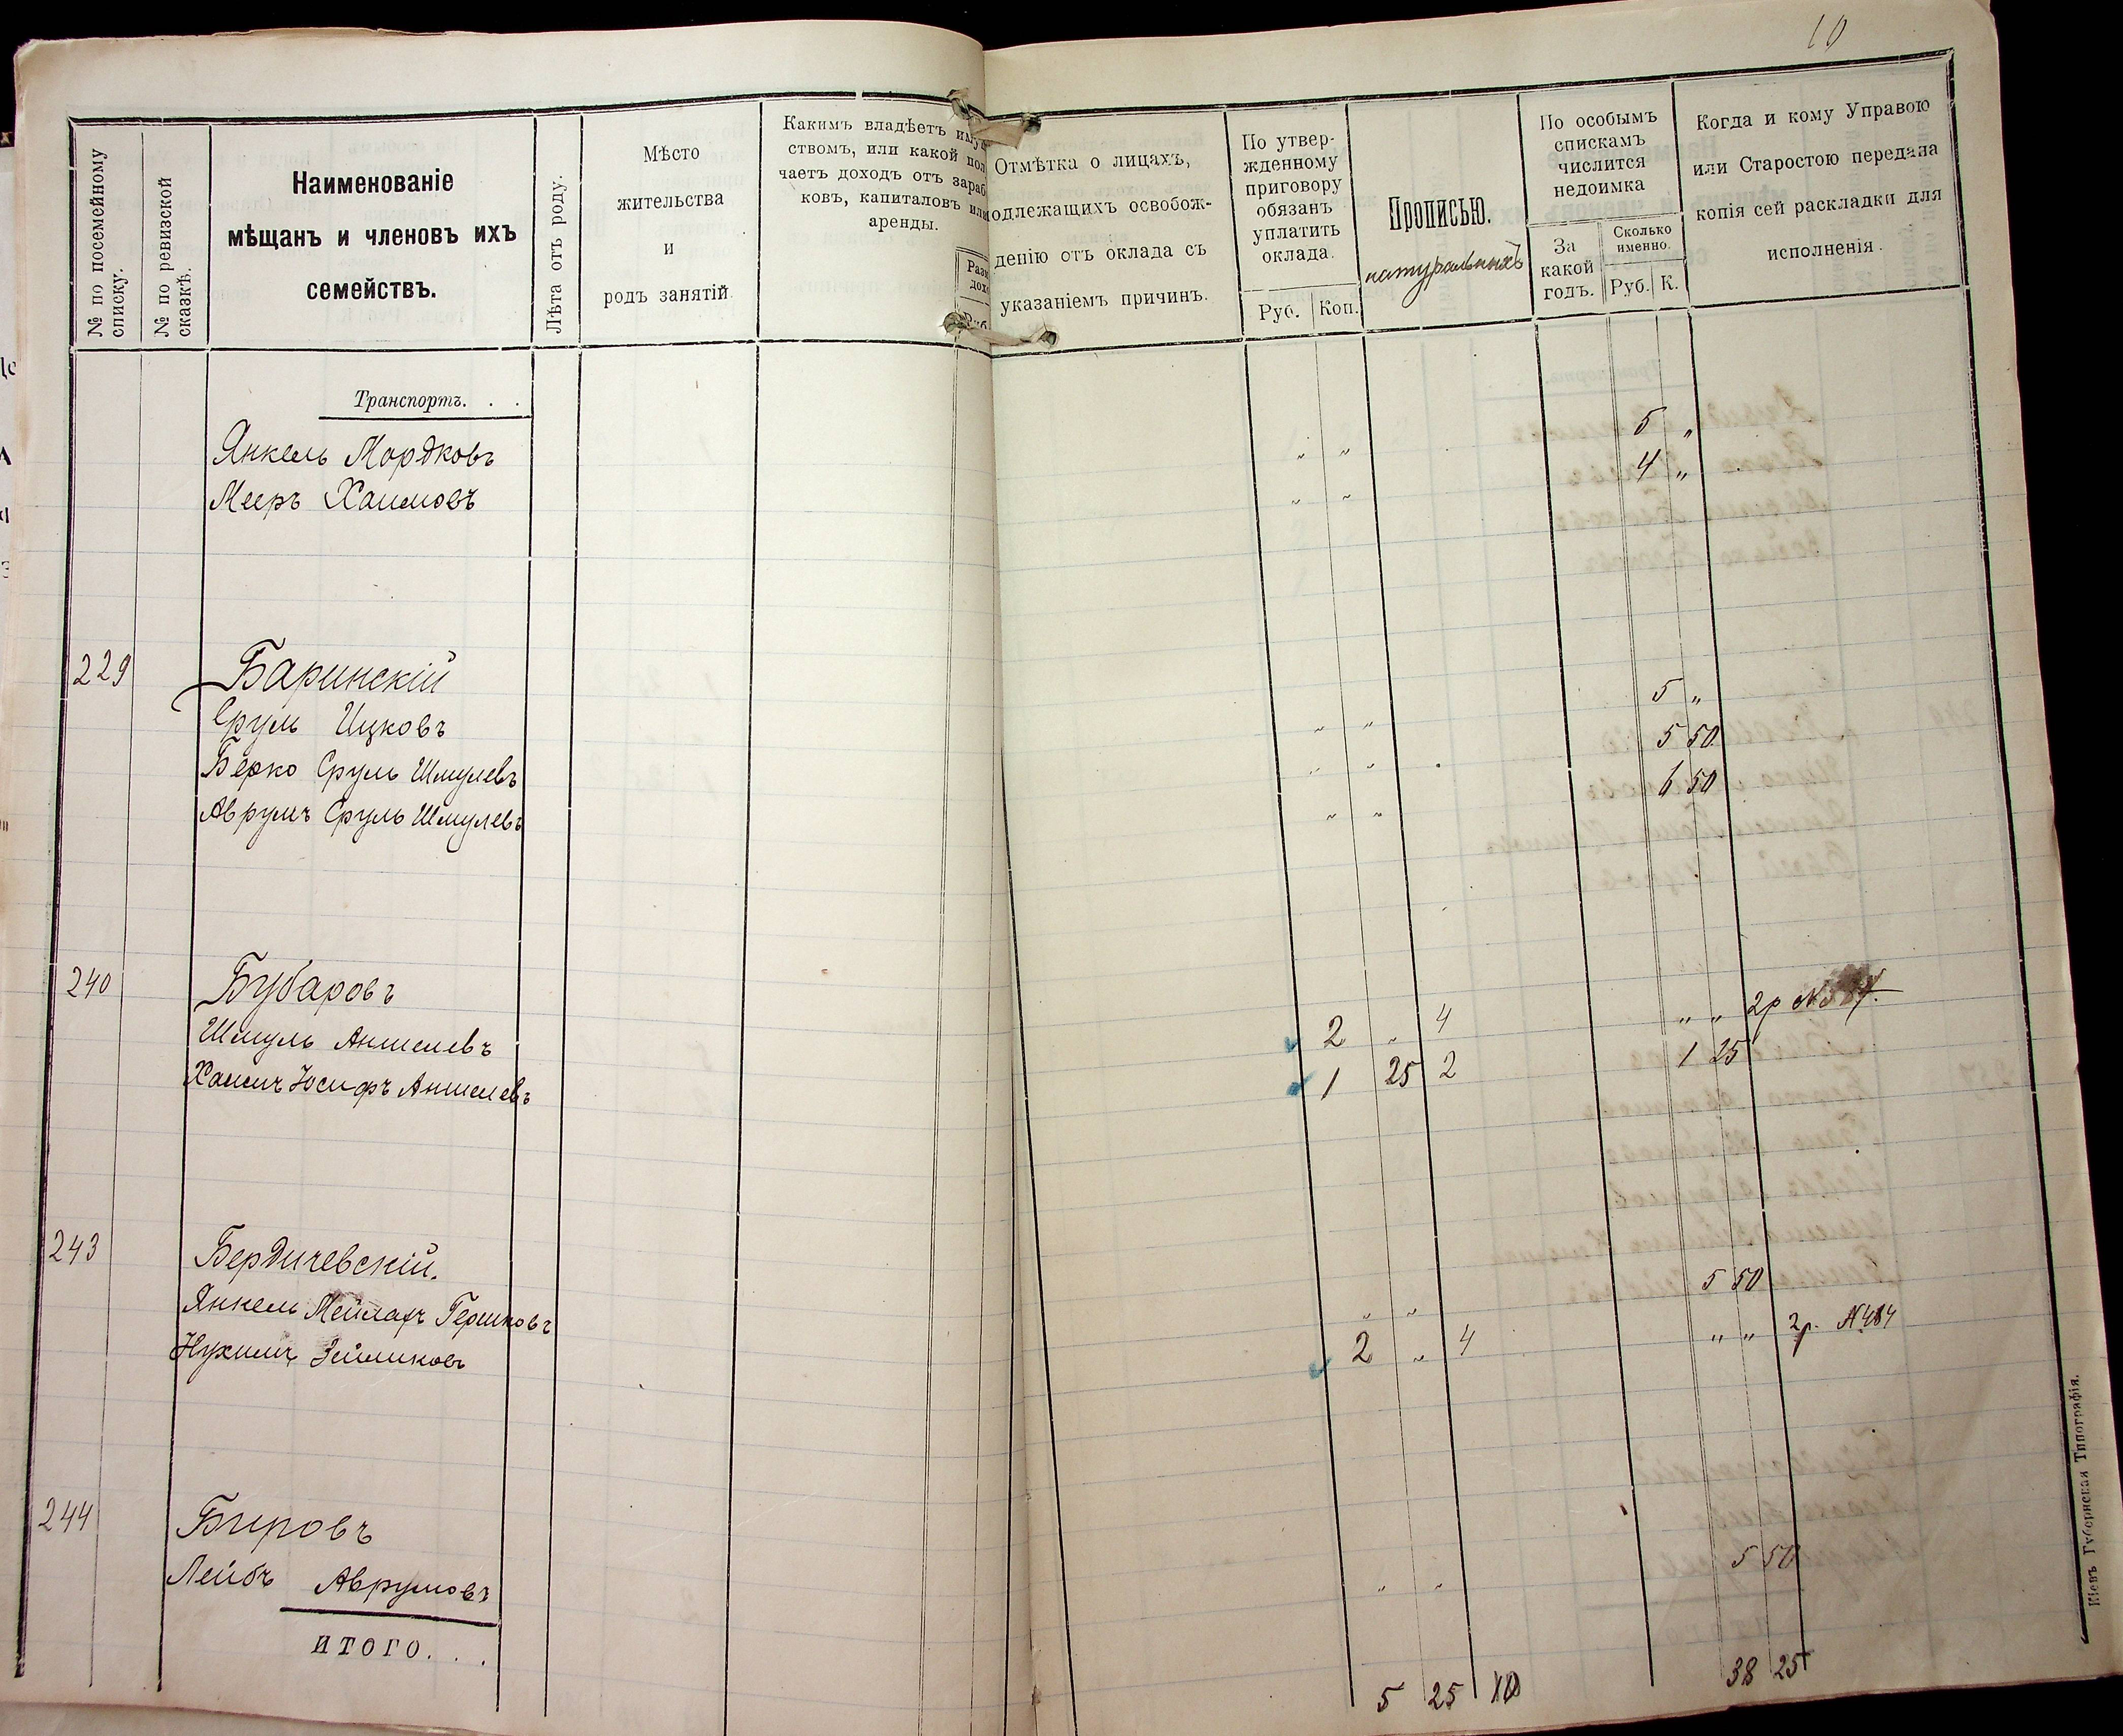 10
№ по посемейному списку.
№ по ревизской сказкѣ.
Наименованіе
мѣщанъ и членовъ ихъ
семействъ.
Лѣта отъ роду.
Мѣсто
жительства
и
родъ занятій.
Какимъ владѣетъ имущ
ствомъ, или какой пол
чаетъ доходъ отъ зараб
ковъ, капиталовъ или
аренды.
Разм
дох
Руб.
Отмѣтка о лицахъ,
одлежащихъ освобож-
денію отъ оклада съ
указаніемъ причинъ.
По утвер-
жденному
приговору
обязанъ
уплатить
оклада.
Руб. Коп.
Прописью.
натуральныхъ
По особымъ
спискамъ
числится
недоимка
За
какой
годъ.
Сколько
именно.
Руб. К.
Когда и кому Управою
или Старостою передана
копія сей раскладки для
исполненія.
Транспортъ. . .
Янкель Мордковъ " " 5 "
Мееръ Хаимовъ " " 4 "
229 Баринскій
Сруль Ицковъ " " 5 "
Берко Сруль Шмулевъ " " 5 50
Аврумъ Сруль Шмулевъ " " 6 50
240 Бубаровъ
Шмуль Аншелевъ 2 " 4 " " 2р №
Хаимъ Юсифъ Аншелевъ 1 25 2 1 25
243 Бердичевскій.
Янкель Мейлахъ Гершковъ " " 5 50
Нухимъ Зейликовъ 2 " 4 " " 2р. №484
244 Бировъ
Лейбъ Аврумовъ " " 5 50
ИТОГО. . . 5 25 10 38 25
Кіевъ Губернская Типографія.